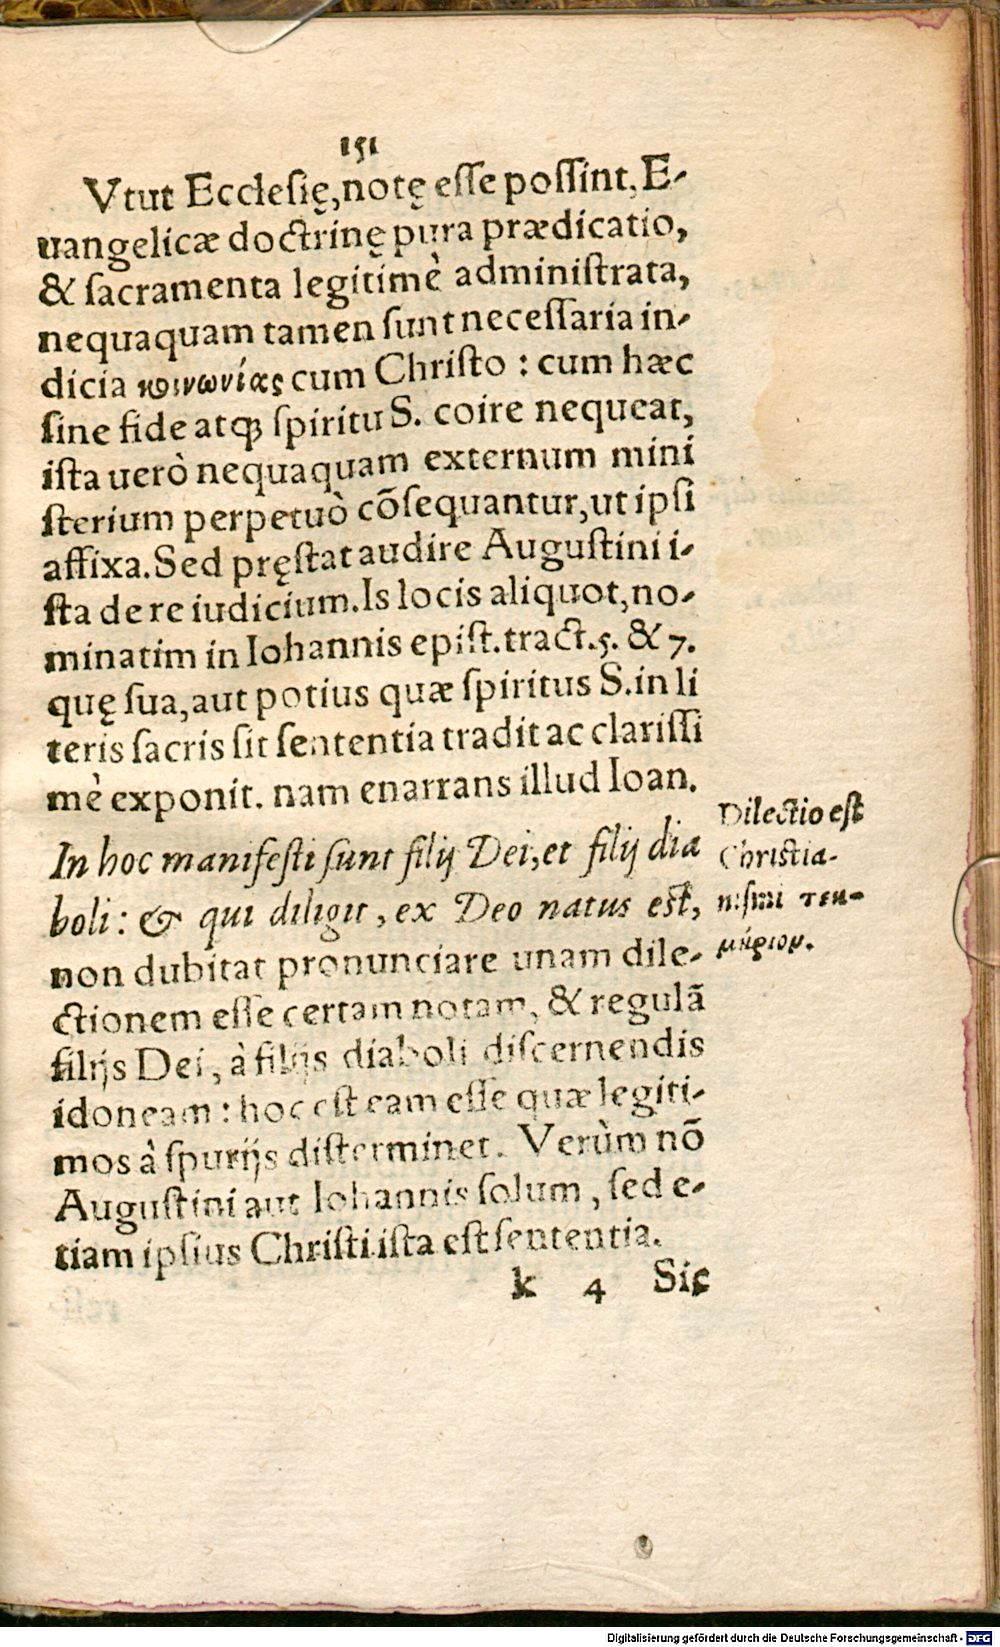 151
Vtut Ecclesię, notę esse possint. E-
uangelicæ doctrinę pura prædicatio,
& sacramenta legitimè administrata,
nequaquam tamen sunt necessaria in-
dicia κοινωνίας cum Christo : cum hæc
sine fide atq; spiritu S. coire nequeat,
ista uerò nequaquam externum mini
sterium perpetuò cõsequantur, ut ipsi
affixa. Sed pręstat audire Augustini i-
sta de re iudicium. Is locis aliquot, no-
minatim in Iohannis epist. tract. 5. & 7.
quę sua, aut potius quæ spiritus S. in li
teris sacris sit sententia tradit ac clarissi
mè exponit. nam enarrans illud Ioan.
In hoc manifesti sunt filij Dei, et filij dia
boli : & qui diligit, ex Deo natus est,
non dubitat pronunciare unam dile-
ctionem esse certam notam, & regulã
filijs Dei, à filijs diaboli discernendis
idoneam : hoc est eam esse quæ legiti-
mos à spurijs disterminet. Verùm nõ
Augustini aut Iohannis solum, sed e-
tiam ipsius Christi ista est sententia.
k 4 Sic
Dilectio est
Christia-
nismi τεκ-
μήριον.
Digitalisierung gefördert durch die Deutsche Forschungsgemeinschaft - DFG